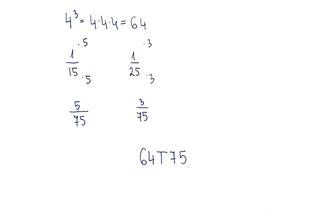 4³ = 4·4·4 = 64
1/15 ·5 ·5 1/25 ·3 ·3
5/75 3/75
64T75